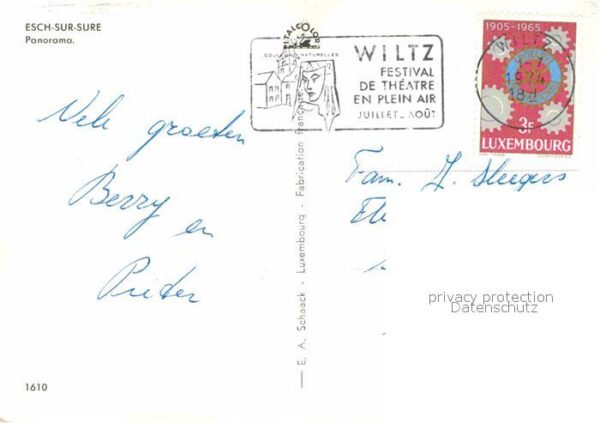 ESCH-SUR-SURE
Panorama.
ITALCOLOR
COULEURS NATURELLES
WILTZ
FESTIVAL
DE THÉATRE
EN PLEIN AIR
JUILLET-AOÛT
1905-1965
WILTZ
1974
3F
LUXEMBOURG
Vele groeten
Berry en
Pieter
Fam. J. Sleegers
E. A. Schaack - Luxembourg - Fabrication française
privacy protection
Datenschutz
1610